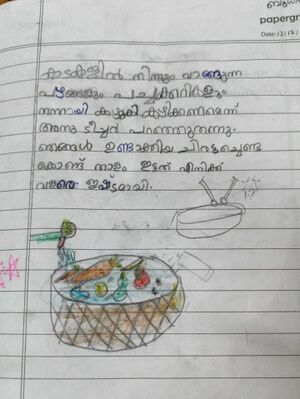 ബുധന
papergr
Date: 13/12
കടകളിൽ നിന്നും വാങ്ങുന്ന
പഴങ്ങളും പച്ചക്കറികളും
നന്നായി കഴുകി കഴിക്കണമെന്ന്
അനു ടീച്ചർ പറഞ്ഞുതന്നു.
ഞങ്ങൾ ഉണ്ടാക്കിയ ചിരട്ടച്ചെണ്ട
കൊണ്ട് താളം ഇട്ടത് എനിക്ക്
വളരെ ഇഷ്ടമായി.